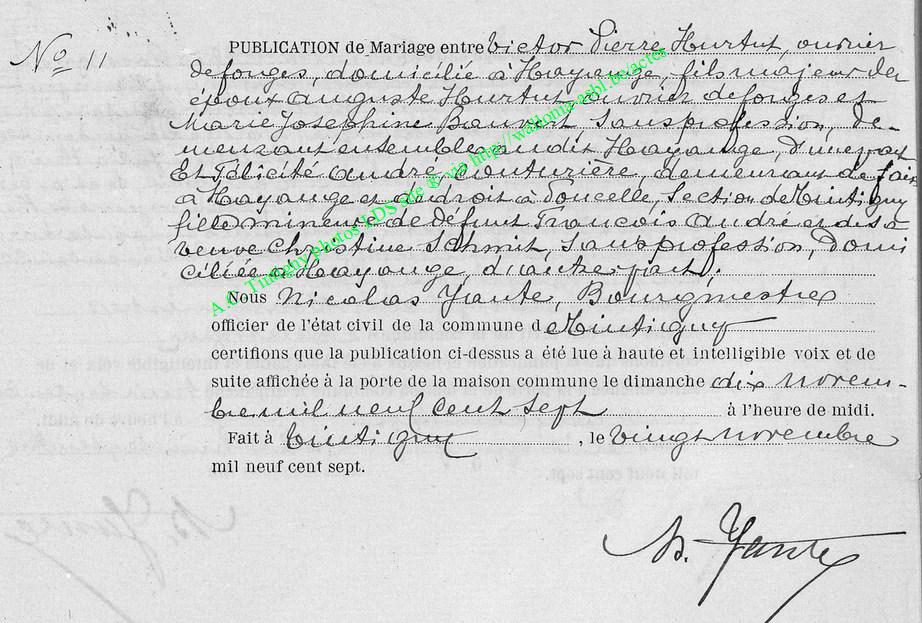 No 11
PUBLICATION de Mariage entre Victor Pierre Hurtut, ouvrier
de forges, domicilié à Hayange, fils majeur des
époux Auguste Hurtut ouvrier de forges et
Marie Joséphine sans profession, de-
meurant ensemble audit Hayange, d'une part
Et Félicité André, couturière, demeurant de fait
à Hayange et de droit à Poncelle, Section de Tintigny
fille mineure de défunt François André et de sa
veuve Christine Schmit, sans profession, domi
ciliée à Hayange, d'autre part.
Nous Nicolas Yante, Bourgmestre
officier de l'état civil de la commune d Tintigny
certifions que la publication ci-dessus a été lue à haute et intelligible voix et de
suite affichée à la porte de la maison commune le dimanche dix novem-
bre mil neuf cent sept à l'heure de midi.
Fait à Tintigny, le vingt novembre
mil neuf cent sept.
N. Yante
A.C. Tintigny photos LDS site ® via http://wallonia-asbl.be/actes